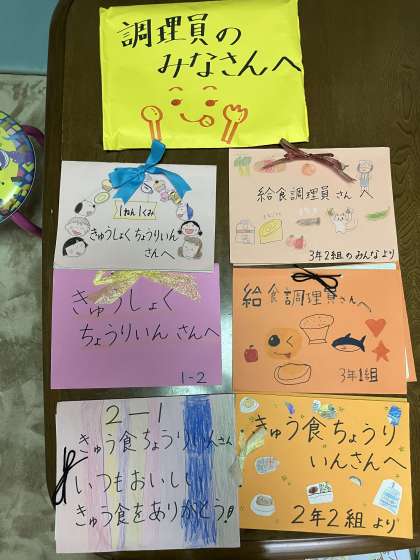 調理員の
みなさんへ
1ねん1くみ
きゅうしょくちょうりいん
さんへ
給食調理員さんへ
3年2組のみんなより
きゅうしょく
ちょうりいんさんへ
1-2
給食調理員さんへ
3年1組
2-1
きゅう食ちょうりいんさん
いつもおいしい
きゅう食をありがとう!
きゅう食ちょうり
いんさんへ
2年2組より